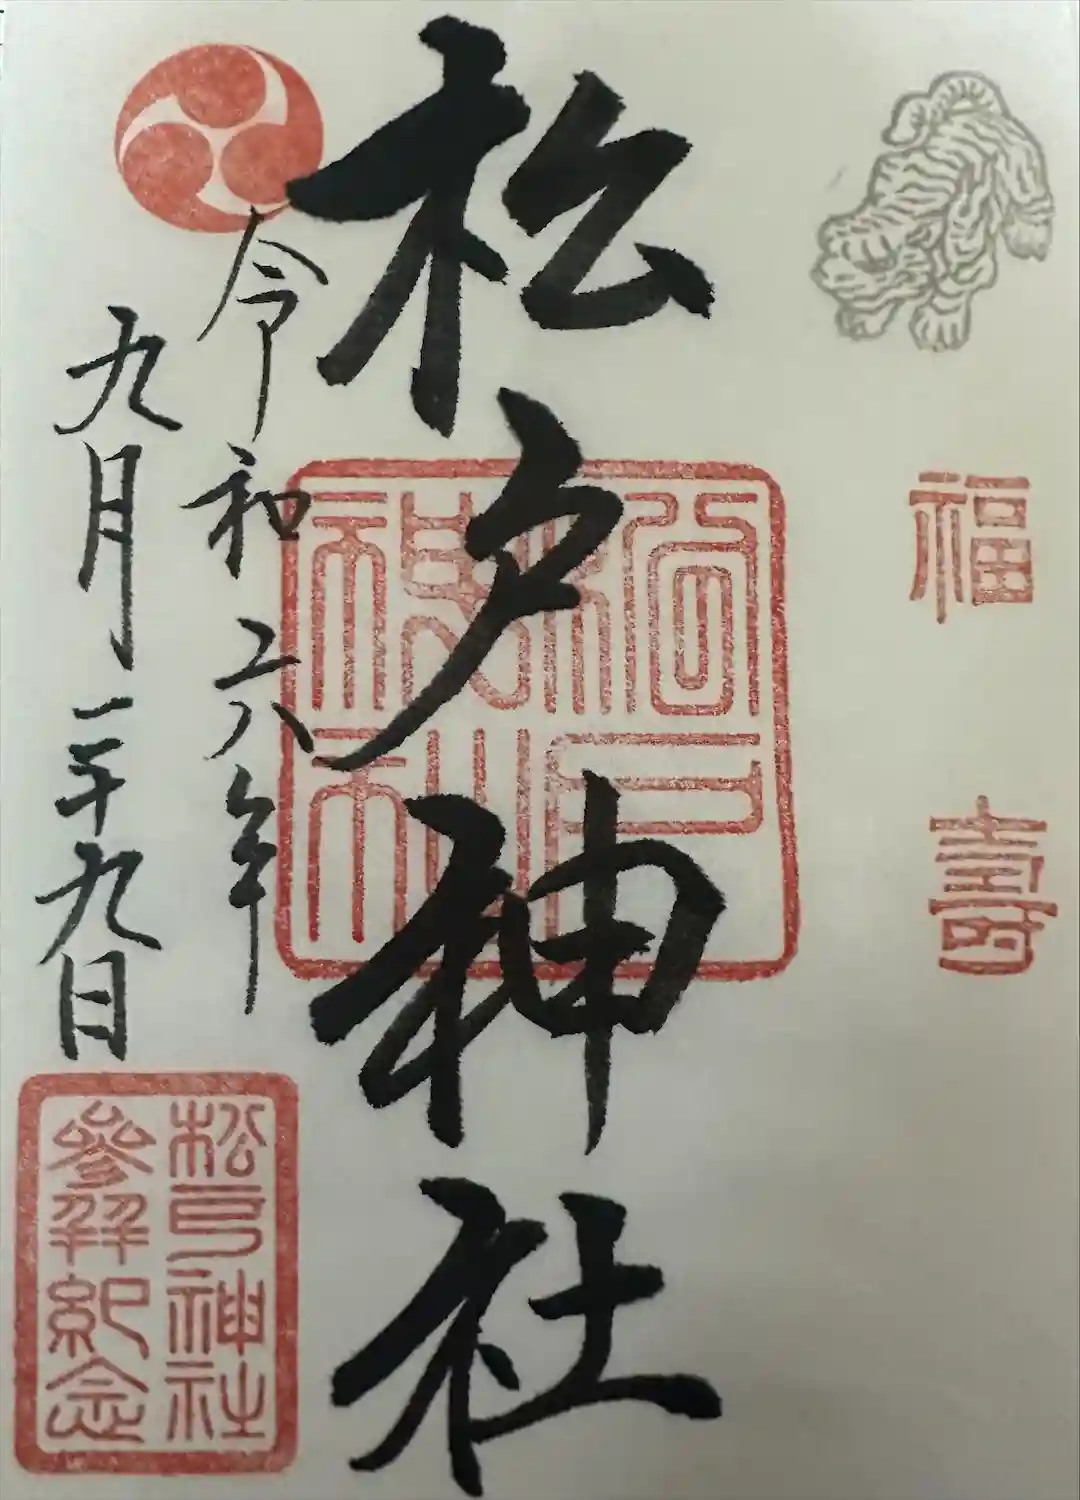 福壽
松戸神社
令和六年
九月二十九日
松戸神社
參拜紀念